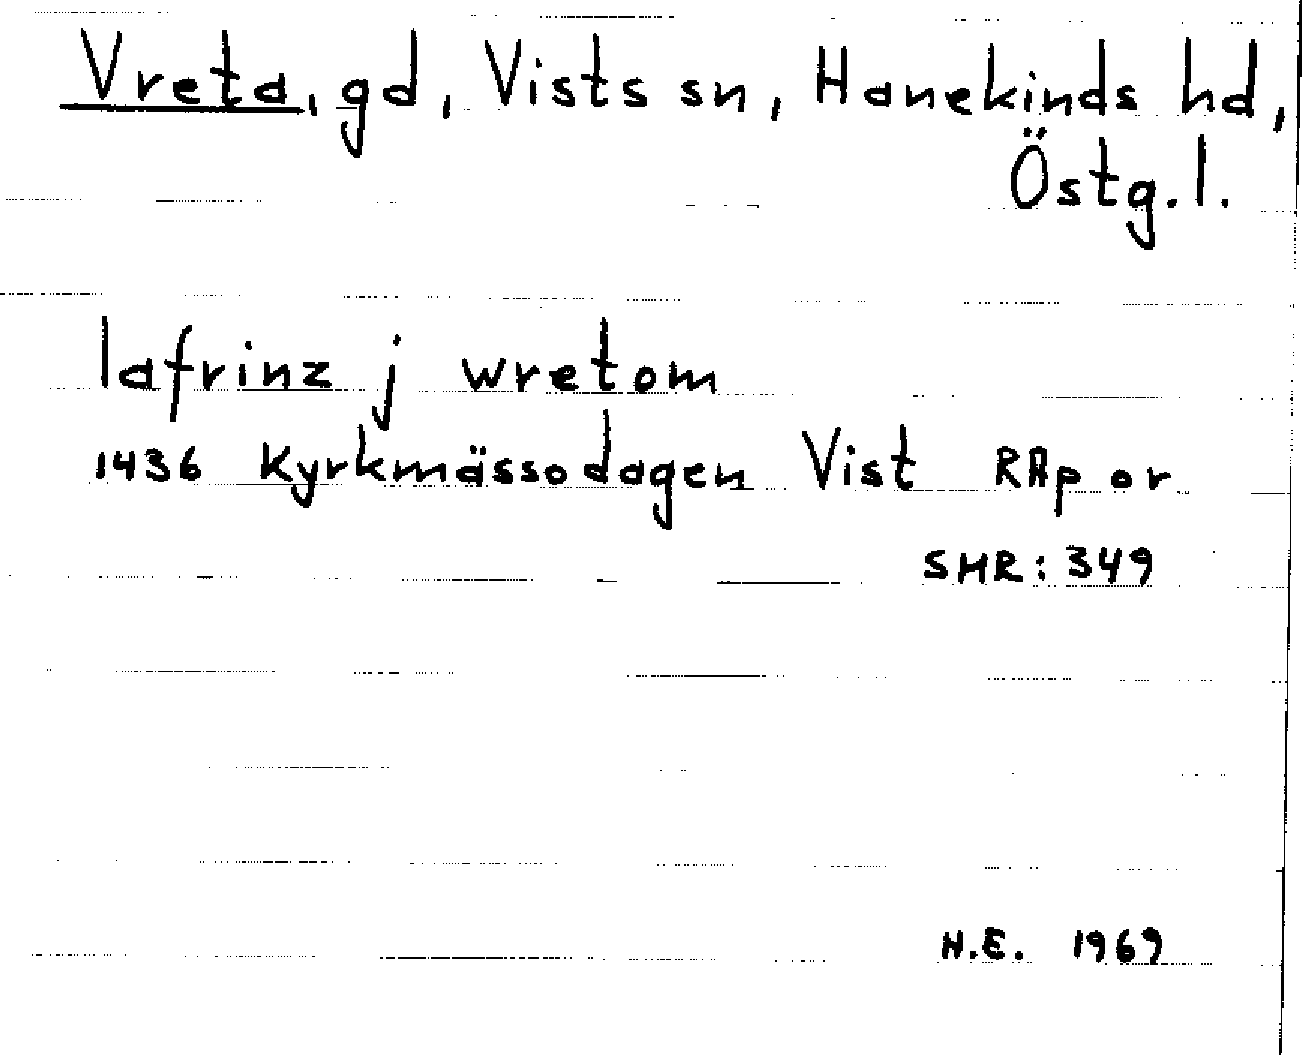 Vreta, gd, Vists sn, Hanekinds hd,
Östg.l.
lafrinz j wretom
1436 Kyrkmässodagen Vist RAp or
SHR: 349
H.E. 1969